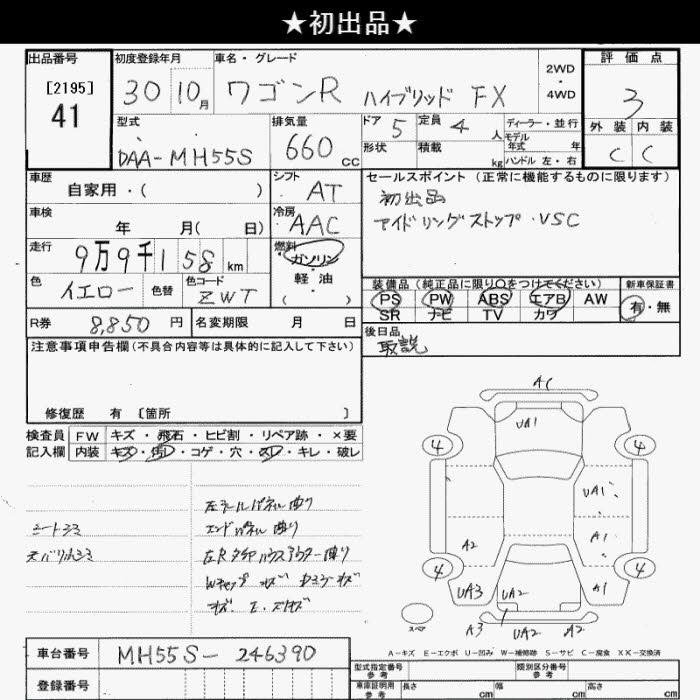 ★初出品★
出品番号
[2195]
41
初度登録年月
30 10月
車名・グレード
ワゴンR ハイブリッド FX
2WD
・
4WD
評価点
3
外装 内装
C C
型式
DAA-MH55S
排気量
660 cc
ドア 5
定員 4 人
形状
積載 kg
ディーラー・並行
モデル
年式 年
ハンドル 左・右
車歴
自家用・( )
シフト
AT
セールスポイント (正常に機能するものに限ります)
初出品
アイドリングストップ・VSC
車検
年 月( 日)
冷房
AAC
走行
9万9千158 km
燃料
ガソリン
・
軽油
( )
色
イエロー
色替
色コード
ZWT
装備品 (純正品に限り○をつけてください)
PS PW ABS エアB AW
SR ナビ TV カワ
新車保証書
有・無
R券 8,850 円
名変期限 月 日
後日品
取説
注意事項申告欄(不具合内容等は具体的に記入して下さい)
修復歴 有 〔箇所 〕
検査員
記入欄
FW キズ・飛石・ヒビ割・リペア跡・×要
内装 キズ・汚レ・コゲ・穴・スレ・キレ・破レ
シートシミ
天バリ小シミ
エンドパネル曲り
A1
UA1
4 4
UA1
A2 A1
4 4
UA3 UA2 A1
スペア
A3 UA2 A2
A-キズ E-エクボ U-凹み W-補修跡 S-サビ C-腐食 XX-交換済
車台番号 MH55S-246390
登録番号
型式指定番号
参考
類別区分番号
参考
車庫証明用
参考
長さ cm
幅 cm
高さ cm